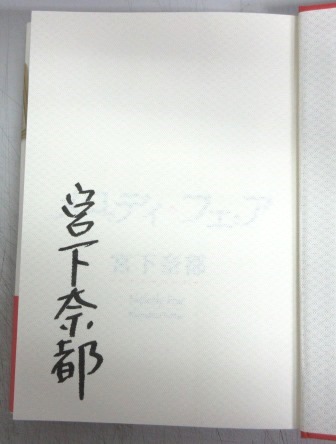 宮下奈都
メロディ・フェア
宮下奈都